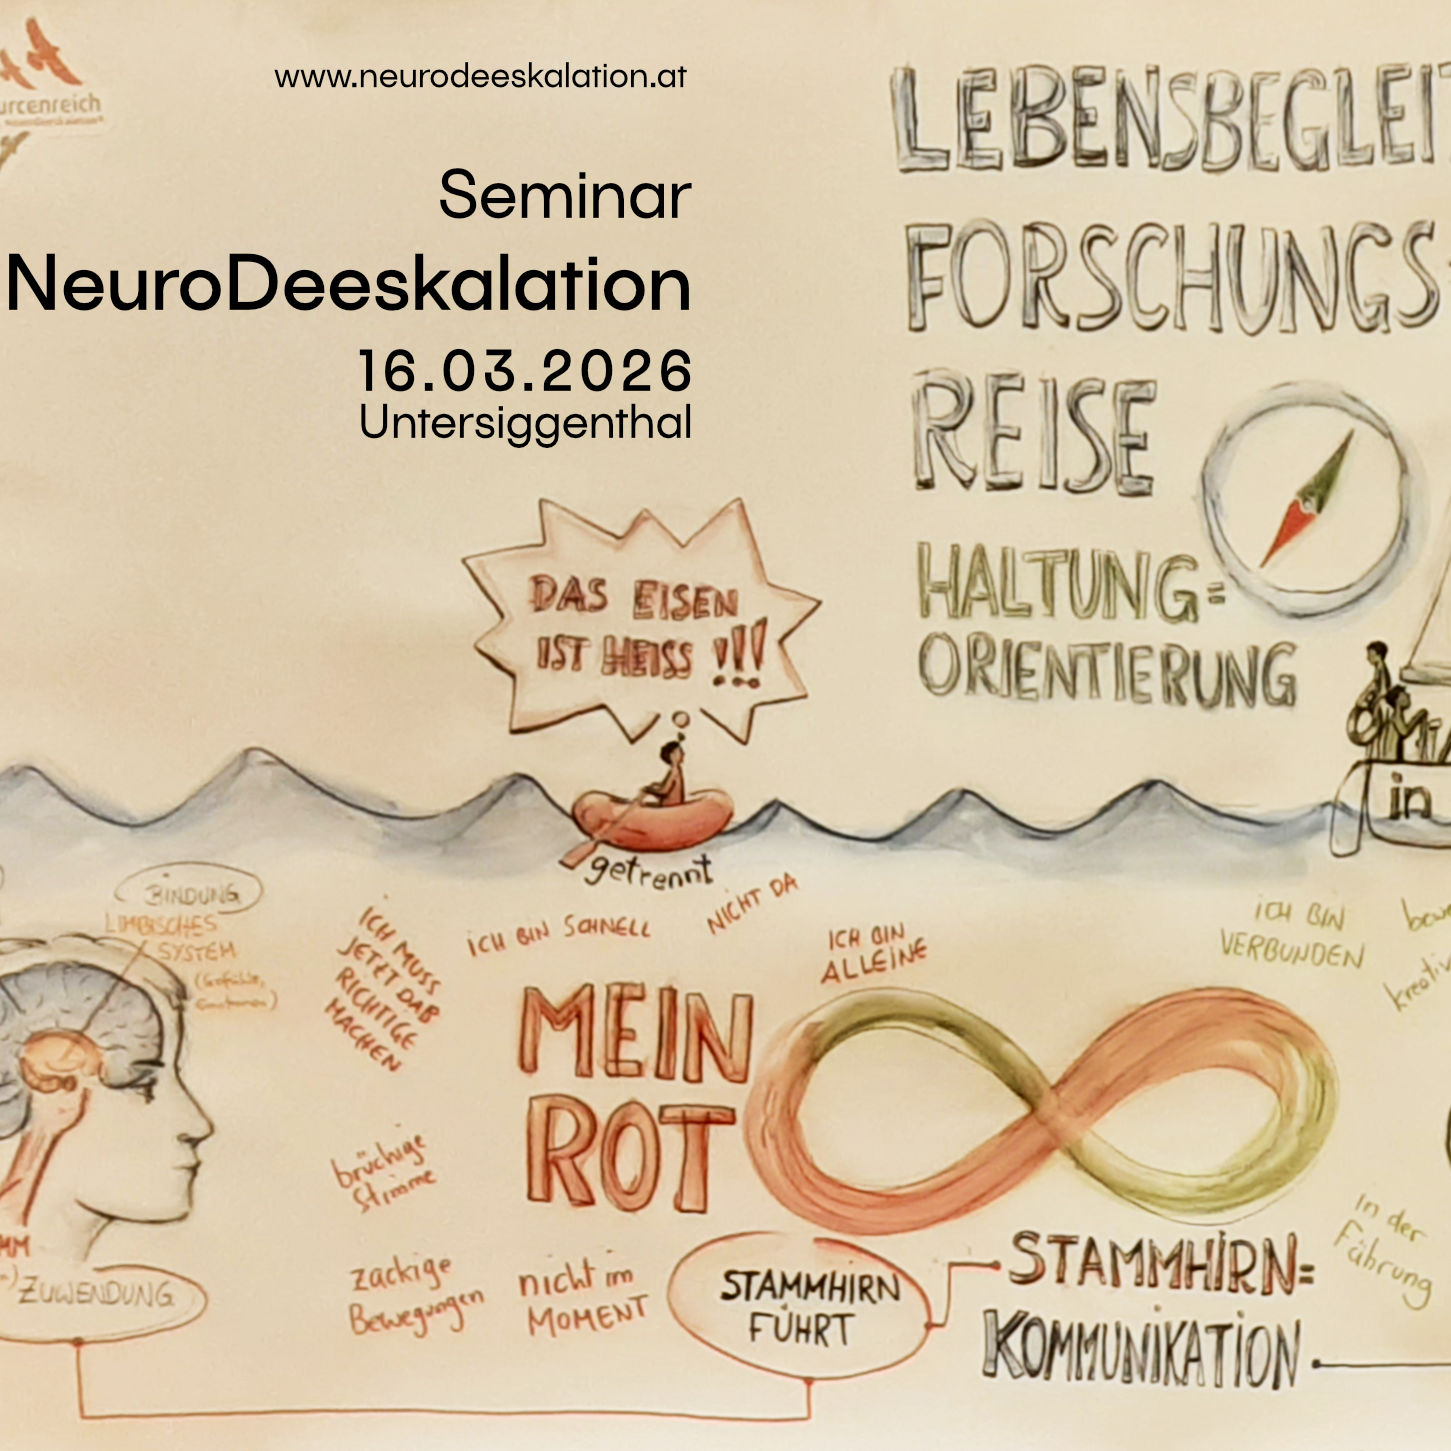 urcenreich
www.neurodeeskalation.at
Seminar
NeuroDeeskalation
16.03.2026
Untersiggenthal
LEBENSBEGLEIT
FORSCHUNGS-
REISE
HALTUNG=
ORIENTIERUNG
DAS EISEN
IST HEISS !!!
getrennt
in
BINDUNG
LIMBISCHES
SYSTEM
(Gefühle,
Emotionen)
ICH MUSS
JETZT DAS
RICHTIGE
MACHEN
ICH BIN SCHNELL
NICHT DA
ICH BIN
ALLEINE
ICH BIN
VERBUNDEN
kreativ
MEIN
ROT
brüchige
Stimme
zackige
Bewegungen
nicht im
MOMENT
ZUWENDUNG
STAMMHIRN
FÜHRT
STAMMHIRN=
KOMMUNIKATION
in der
Führung